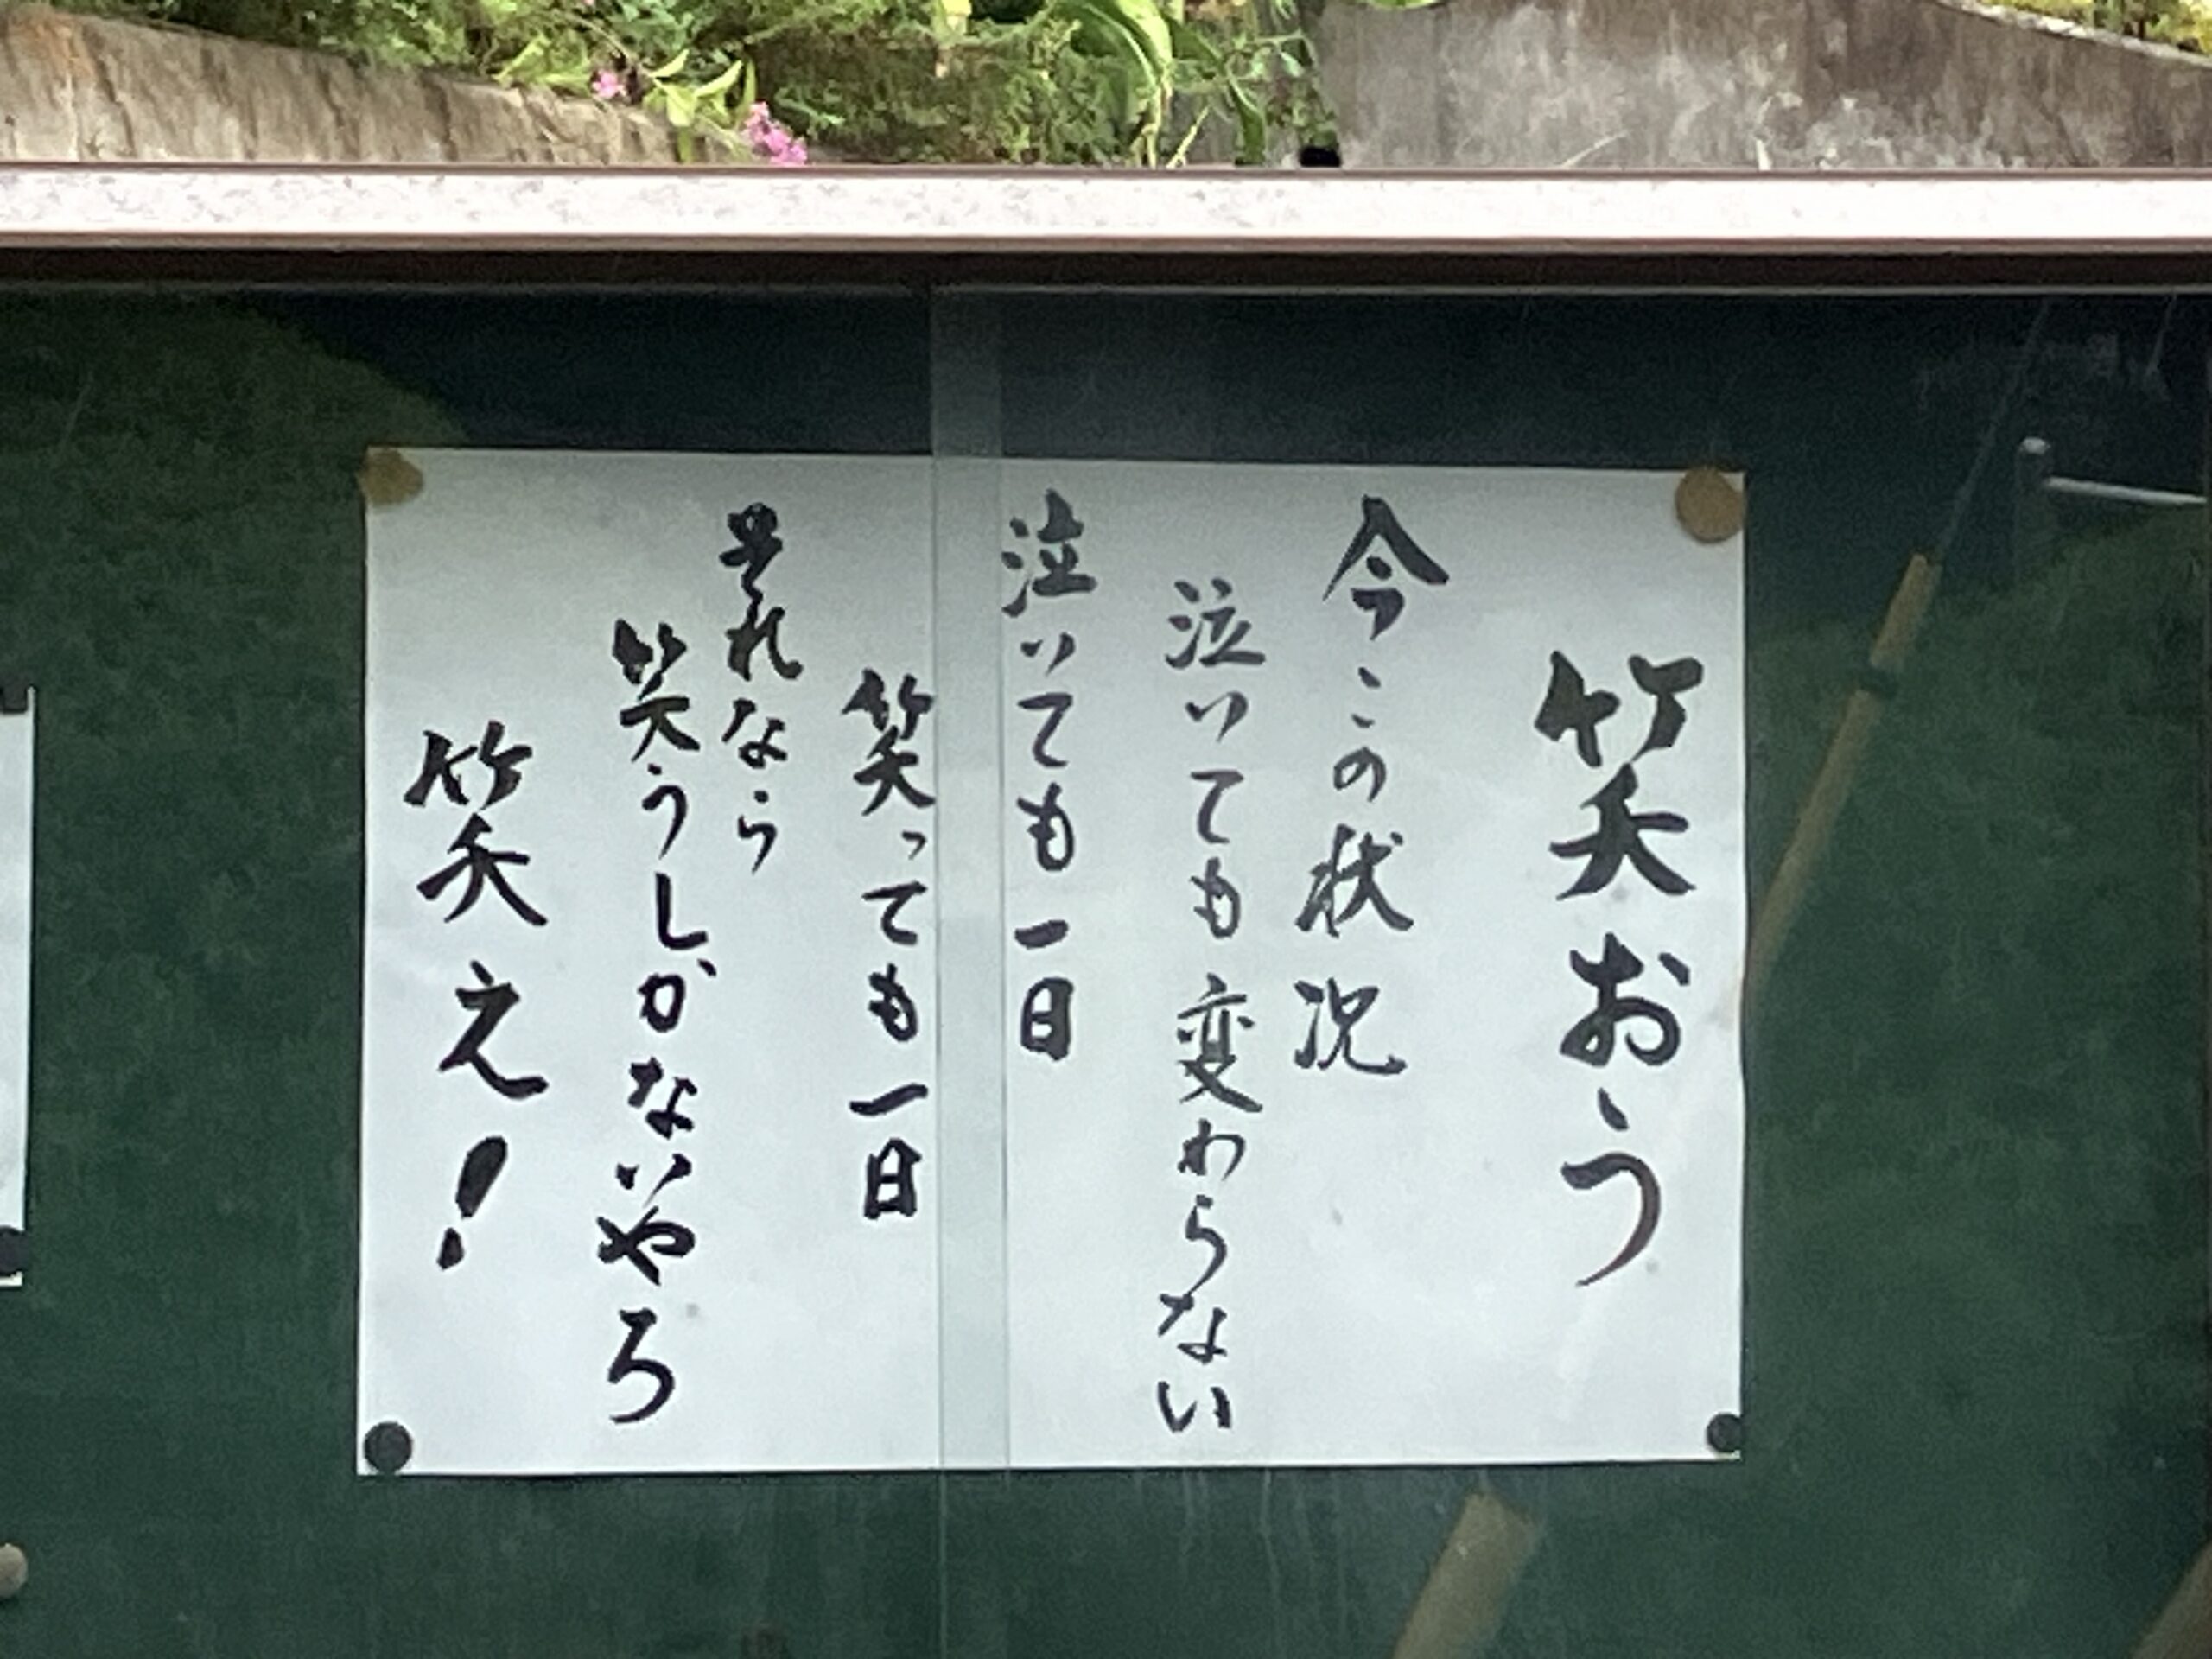 笑おう
今この状況
泣いても変わらない
泣いても一日
笑っても一日
それなら
笑うしかないやろ
笑え！